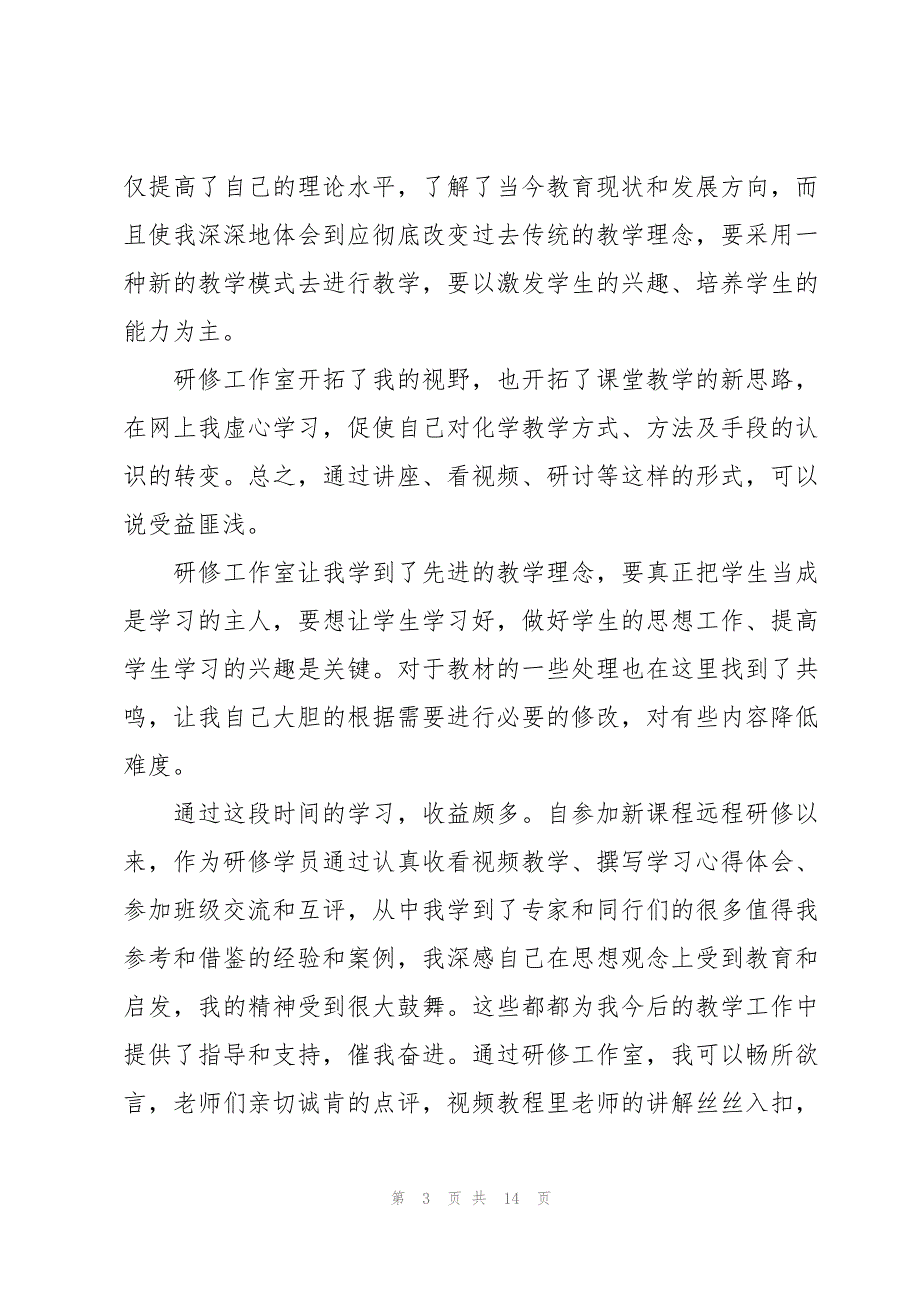 仅提高了自己的理论水平，了解了当今教育现状和发展方向，而
且使我深深地体会到应彻底改变过去传统的教学理念，要采用一
种新的教学模式去进行教学，要以激发学生的兴趣、培养学生的
能力为主。
研修工作室开拓了我的视野，也开拓了课堂教学的新思路，
在网上我虚心学习，促使自己对化学教学方式、方法及手段的认
识的转变。总之，通过讲座、看视频、研讨等这样的形式，可以
说受益匪浅。
研修工作室让我学到了先进的教学理念，要真正把学生当成
是学习的主人，要想让学生学习好，做好学生的思想工作、提高
学生学习的兴趣是关键。对于教材的一些处理也在这里找到了共
鸣，让我自己大胆的根据需要进行必要的修改，对有些内容降低
难度。
通过这段时间的学习，收益颇多。自参加新课程远程研修以
来，作为研修学员通过认真收看视频教学、撰写学习心得体会、
参加班级交流和互评，从中我学到了专家和同行们的很多值得我
参考和借鉴的经验和案例，我深感自己在思想观念上受到教育和
启发，我的精神受到很大鼓舞。这些都都为我今后的教学工作中
提供了指导和支持，催我奋进。通过研修工作室，我可以畅所欲
言，老师们亲切诚肯的点评，视频教程里老师的讲解丝丝入扣，
第 3 页 共 14 页